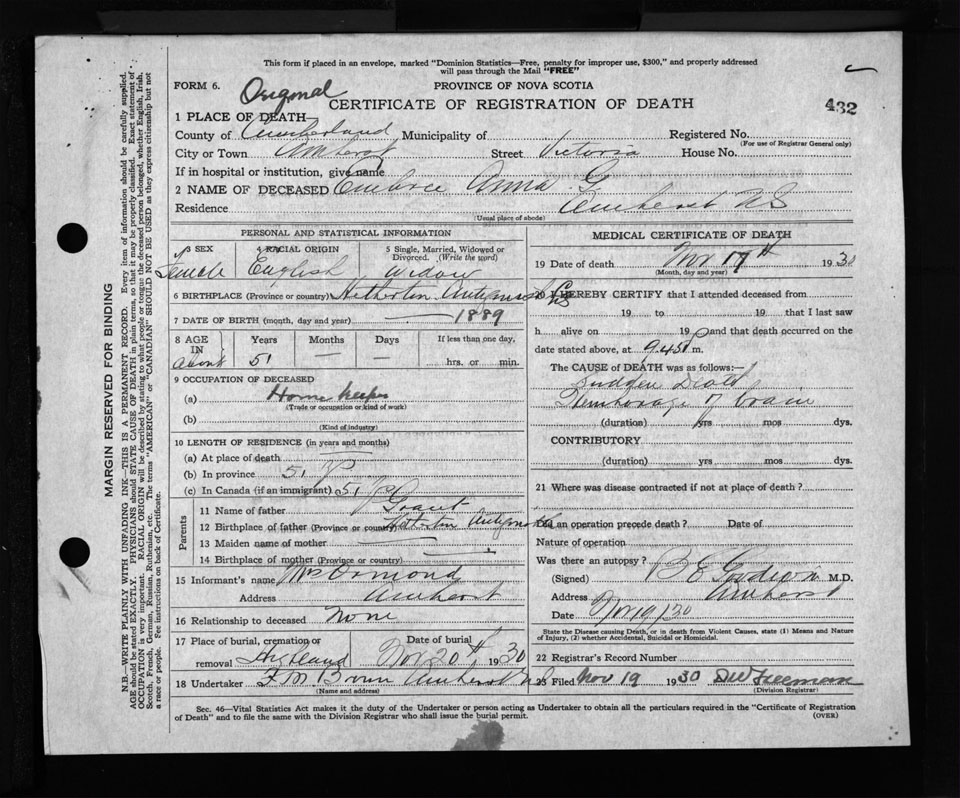 This form if placed in an envelope, marked "Dominion Statistics—Free, penalty for improper use, $300," and properly addressed
will pass through the Mail "FREE"
FORM 6.
Original
PROVINCE OF NOVA SCOTIA
CERTIFICATE OF REGISTRATION OF DEATH
432
1 PLACE OF DEATH
County of Cumberland Municipality of Registered No.
(For use of Registrar General only)
City or Town Amherst Street Victoria House No.
If in hospital or institution, give name
2 NAME OF DECEASED Embree Anna G
Residence Amherst NS
(Usual place of abode)
PERSONAL AND STATISTICAL INFORMATION
3 SEX
Female
4 RACIAL ORIGIN
English
5 Single, Married, Widowed or Divorced. (Write the word)
Widow
6 BIRTHPLACE (Province or country) Antigonish
7 DATE OF BIRTH (month, day and year) — 1889
8 AGE IN Years Months Days If less than one day,
about 51 — — hrs. or min.
9 OCCUPATION OF DECEASED
(a) Home keeper
(Trade or occupation or kind of work)
(b)
(Kind of industry)
10 LENGTH OF RESIDENCE (in years and months)
(a) At place of death
(b) In province 51
(c) In Canada (if an immigrant) 51
Parents
11 Name of father Grant
12 Birthplace of father (Province or country) Antigonish
13 Maiden name of mother
14 Birthplace of mother (Province or country)
15 Informant's name Mrs Ormond
Address Amherst
16 Relationship to deceased None
17 Place of burial, cremation or removal Highland
Date of burial Nov 20th, 1930
18 Undertaker Amherst
(Name and address)
MEDICAL CERTIFICATE OF DEATH
19 Date of death Nov 17th 1930
(Month, day and year)
20 I HEREBY CERTIFY that I attended deceased from
19 to 19 that I last saw
h alive on 19 and that death occurred on
date stated above, at 9.45 m.
The CAUSE of DEATH was as follows:—
Sudden Death
Hemhorage of brain
(duration) yrs mos dys.
CONTRIBUTORY
(duration) yrs mos dys.
21 Where was disease contracted if not at place of death?
Did an operation precede death? Date of
Nature of operation
Was there an autopsy?
(Signed) M.D.
Address Amherst
Date Nov 19/30
State the Disease causing Death, or in death from Violent Causes, state (1) Means and Nature
of Injury, (2) whether Accidental, Suicidal or Homicidal.
22 Registrar's Record Number
23 Filed Nov 19 1930 DW Freeman
(Division Registrar)
Sec. 46—Vital Statistics Act makes it the duty of the Undertaker or person acting as Undertaker to obtain all the particulars required in the "Certificate of Registration
of Death" and to file the same with the Division Registrar who shall issue the burial permit.
(OVER)
MARGIN RESERVED FOR BINDING
N.B.—WRITE PLAINLY WITH UNFADING INK—THIS IS A PERMANENT RECORD. Every item of information should be carefully supplied.
AGE should be stated EXACTLY. PHYSICIANS should STATE CAUSE OF DEATH in plain terms, so that it may be properly classified. Exact statement of
OCCUPATION is very important. RACIAL ORIGIN will be described by stating to what people or tongue the deceased person belonged, whether English, Irish,
Scotch, French, German, Russian, Ruthenian, etc. The terms "AMERICAN" or "CANADIAN" SHOULD NOT BE USED as they express citizenship but not
a race or people. See instructions on back of Certificate.